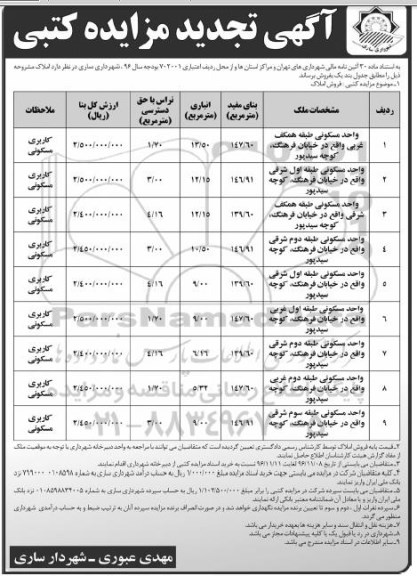 آگهی تجدید مزایده کتبی
شهرداری ساری
به استناد ماده ۳۰ آئین نامه مالی شهرداری های تهران و مراکز استان ها و از محل ردیف اعتباری ۷۰۲۰۰۱ بودجه سال ۹۶، شهرداری ساری در نظر دارد املاک مشروحه
ذیل را مطابق جدول بند یک بفروش برساند.
۱ـ موضوع مزایده کتبی: فروش املاک
ردیف مشخصات ملک بنای مفید (مترمربع) انباری (مترمربع) تراس یا حق دسترسی (مترمربع) ارزش کل بنا (ریال) ملاحظات
۱ واحد مسکونی طبقه همکف غربی واقع در خیابان فرهنگ، کوچه سیدپور ۱۴۷/۶۰ ۱۳/۵۰ ۱/۷۰ ۲/۵۰۰/۰۰۰/۰۰۰ کاربری مسکونی
۲ واحد مسکونی طبقه اول شرقی واقع در خیابان فرهنگ، کوچه سیدپور ۱۴۶/۹۱ ۱۲/۱۵ ۳/۰۰ ۲/۵۰۰/۰۰۰/۰۰۰ کاربری مسکونی
۳ واحد مسکونی طبقه همکف شرقی واقع در خیابان فرهنگ، کوچه سیدپور ۱۳۹/۶۰ ۱۲/۱۵ ۴/۱۶ ۲/۴۰۰/۰۰۰/۰۰۰ کاربری مسکونی
۴ واحد مسکونی طبقه دوم شرقی واقع در خیابان فرهنگ، کوچه سیدپور ۱۴۶/۹۱ ۱۰/۵۰ ۳/۰۰ ۲/۴۵۰/۰۰۰/۰۰۰ کاربری مسکونی
۵ واحد مسکونی طبقه اول شرقی واقع در خیابان فرهنگ، کوچه سیدپور ۱۳۹/۶۰ ۹/۰۰ ۴/۱۶ ۲/۴۰۰/۰۰۰/۰۰۰ کاربری مسکونی
۶ واحد مسکونی طبقه اول غربی واقع در خیابان فرهنگ، کوچه سیدپور ۱۴۷/۶۰ ۹/۰۰ ۱/۷۰ ۲/۵۰۰/۰۰۰/۰۰۰ کاربری مسکونی
۷ واحد مسکونی طبقه دوم شرقی واقع در خیابان فرهنگ، کوچه سیدپور ۱۳۹/۶۰ ۶/۲۶ ۴/۱۶ ۲/۴۰۰/۰۰۰/۰۰۰ کاربری مسکونی
۸ واحد مسکونی طبقه دوم غربی واقع در خیابان فرهنگ، کوچه سیدپور ۱۴۷/۶۰ ۵/۳۲ ۱/۷۰ ۲/۴۵۰/۰۰۰/۰۰۰ کاربری مسکونی
۹ واحد مسکونی طبقه سوم شرقی واقع در خیابان فرهنگ، کوچه سیدپور ۱۴۶/۹۱ ۹/۰۰ ۳/۰۰ ۲/۴۵۰/۰۰۰/۰۰۰ کاربری مسکونی
۲ـ قیمت پایه فروش املاک توسط کارشناس رسمی دادگستری تعیین گردیده است که متقاضیان می توانند با مراجعه به واحد دبیرخانه شهرداری با توجه به موقعیت ملک
از مفاد گزارش هیئت کارشناسان اطلاع حاصل نمایند.
۳ـ متقاضیان می بایستی از تاریخ ۹۶/۱۱/۰۸ لغایت ۹۶/۱۱/۱۱ نسبت به خرید اسناد مزایده کتبی از دبیرخانه شهرداری اقدام نمایند.
۴ـ کلیه متقاضیان شرکت در مزایده می بایستی جهت خرید اسناد مزایده مبلغ ۷۰۰/۰۰۰ ریال به حساب درآمد شهرداری ساری به شماره
بانک ملی ایران واریز نمایند.
۵ـ متقاضیان می بایست سپرده شرکت در مزایده کتبی را برابر مبلغ ۱/۱۰۲/۵۰۰/۰۰۰ ریال به حساب سپرده شهرداری ساری به شماره نزد بانک
ملی ایران واریز و یا معادل آن ضمانتنامه معتبر بانکی ارائه نمایند.
۶ـ سپرده نفرات اول، دوم و سوم تا تعیین برنده مزایده نگهداری خواهد شد و در صورت انصراف برنده مزایده سپرده آنان به ترتیب ضبط و به حساب درآمدی شهرداری
منظور می گردد.
۷ـ هزینه نقل و انتقال سند و سایر هزینه ها بعهده خریدار می باشد.
۸ـ شهرداری در رد یا قبول یک یا کلیه پیشنهادات مجاز می باشد.
۹ـ سایر اطلاعات در اسناد مزایده مندرج می باشد.
مهدی عبوری ـ شهردار ساری